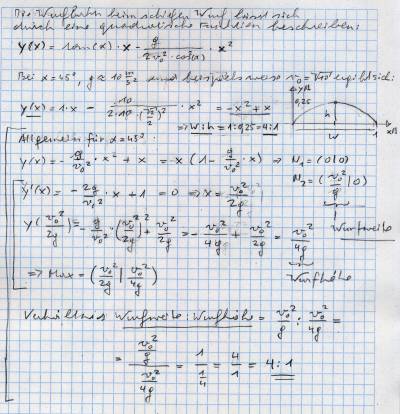 Die Wurfbahn beim schiefen Wurf lässt sich
durch eine quadratische Funktion beschreiben:
y(x) = tan(α) · x - g/(2v₀² · cos²(α)) · x²
Bei α = 45°, g ≈ 10 m/s² und beispielsweise v₀ = √10 ergibt sich:
y(x) = 1·x - 10/(2·10·(√2/2)²) · x² = -x² + x
⇒ w:h = 1:0,25 = 4:1
y 0,25 h w 1 x
Allgemein für α = 45°:
y(x) = - g/v₀² · x² + x = -x (1 - g/v₀² · x) ⇒ N₁ = (0|0)
N₂ = (v₀²/g | 0)
Wurfweite
y'(x) = - 2g/v₀² · x + 1 = 0 ⇒ x = v₀²/2g
y(v₀²/2g) = - g/v₀² · (v₀²/2g)² + v₀²/2g = - v₀²/4g + v₀²/2g = v₀²/4g
Wurfhöhe
⇒ Max = (v₀²/2g | v₀²/4g)
Verhältnis Wurfweite : Wurfhöhe = v₀²/g : v₀²/4g =
= (v₀²/g)/(v₀²/4g) = 1/(1/4) = 4/1 = 4:1